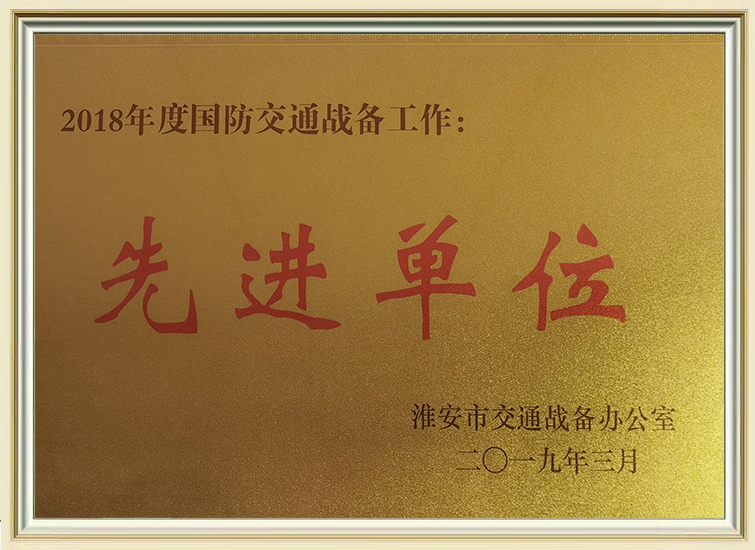 2018年度国防交通战备工作：
先进单位
淮安市交通战备办公室
二〇一九年三月